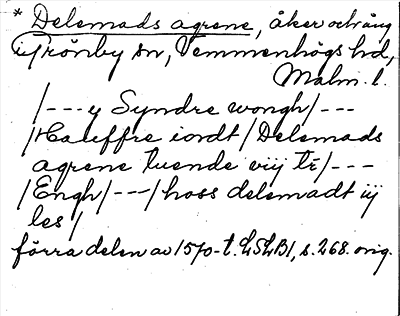 * Delemads agrene, åker och äng
i Grönby sn, Vemmenhögs hd,
Malm. l.
/---y Syndre wongh/---
/Hauffre iordt/Delemads
agrene tuende vij tr/---
/Engh/---/hoss delemadt iij
les/
förra delen av 1570-t. LSLB1, s. 268. orig.